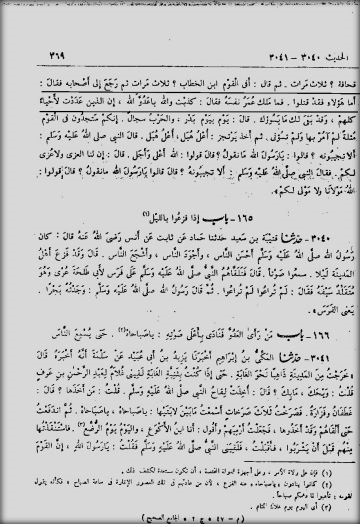 الحديث ٣٠٤٠ - ٣٠٤١ ٣٦٩
قحافة ؟ ثلاث مرات . ثم قال : أفى القوم ابن الخطاب ؟ ثلاث مرات . ثم رجع إلى أصحابه فقال :
أما هؤلاء فقد قتلوا . فما ملك عمر نفسه فقال : كذبت والله يا عدو الله ، إن الذين عددت لأحياء
كلهم ، وقد بقى لك ما يسوؤك . قال : يوم بيوم بدر ، والحرب سجال . إنكم ستجدون فى القوم
مثلة لم آمر بها ولم تسؤنى . ثم أخذ يرتجز : أعل هبل ، أعل هبل . قال النبى صلى الله عليه وسلم :
ألا تجيبونه ؟ قالوا : يا رسول الله ما نقول ؟ قال قولوا : الله أعلى وأجل . قال : إن لنا العزى ولا عزى
لكم . فقال النبى صلى الله عليه وسلم : ألا تجيبونه ؟ قال قالوا يا رسول الله ما نقول ؟ قال قولوا :
الله مولانا ولا مولى لكم» .
١٦٥ - باب إذا فزعوا بالليل (١)
٣٠٤٠ - حدثنا قتيبة بن سعيد حدثنا حماد عن ثابت عن أنس رضى الله عنه قال : كان
رسول الله صلى الله عليه وسلم أحسن الناس ، وأجود الناس ، وأشجع الناس . قال وقد فزع أهل
المدينة ليلا . سمعوا صوتاً . قال فتلقاهم النبى صلى الله عليه وسلم على فرس لأبى طلحة عرى وهو
متقلد سيفه فقال : لم تراعوا لم تراعوا . ثم قال رسول الله صلى الله عليه وسلم : وجدته بحرا .
يعنى الفرس» .
١٦٦ - باب من رأى العدو فنادى بأعلى صوته : يا صباحاه (٢) . حتى يسمع الناس
٣٠٤١ - حدثنا المكى بن إبراهيم أخبرنا يزيد بن أبى عبيد عن سلمة أنه أخبره قال
«خرجت من المدينة ذاهبا نحو الغابة . حتى إذا كنت بثنية الغابة لقينى غلام لعبد الرحمن بن عوف
قلت : ويحك ، ما بك ؟ قال : أخذت لقاح النبى صلى الله عليه وسلم . قلت : من أخذها ؟ قال :
غطفان وفزارة . فصرخت ثلاث صرخات أسمعت ما بين لابتيها : يا صباحاه ، يا صباحاه . ثم اندفعت
حتى ألقاهم وقد أخذوها ، فجعلت أرميهم وأقول : أنا ابن الأكوع ، واليوم يوم الرضع (٣) . فاستنقذتها
منهم قبل أن يشربوا ، فأقبلت بها أسوقها ، فلقينى النبى صلى الله عليه وسلم فقلت : يا رسول الله ، إن القوم
(١) فإن على ولاة الأمر ، وعلى أجهزة الدولة المختصة ، أن تكون مستعدة لكشف ذلك .
(٣) أى اليوم يوم هلاك اللئام .
(م - ٤٧ ج ٢ الجامع الصحيح)